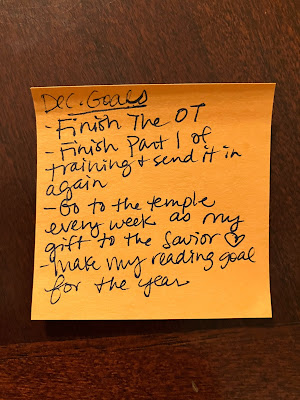 Dec. Goals
- Finish The OT
- Finish Part 1 of
training & send it in
again
- Go to the temple
every week as my
gift to the Savior ♡
- make my reading goal
for the year